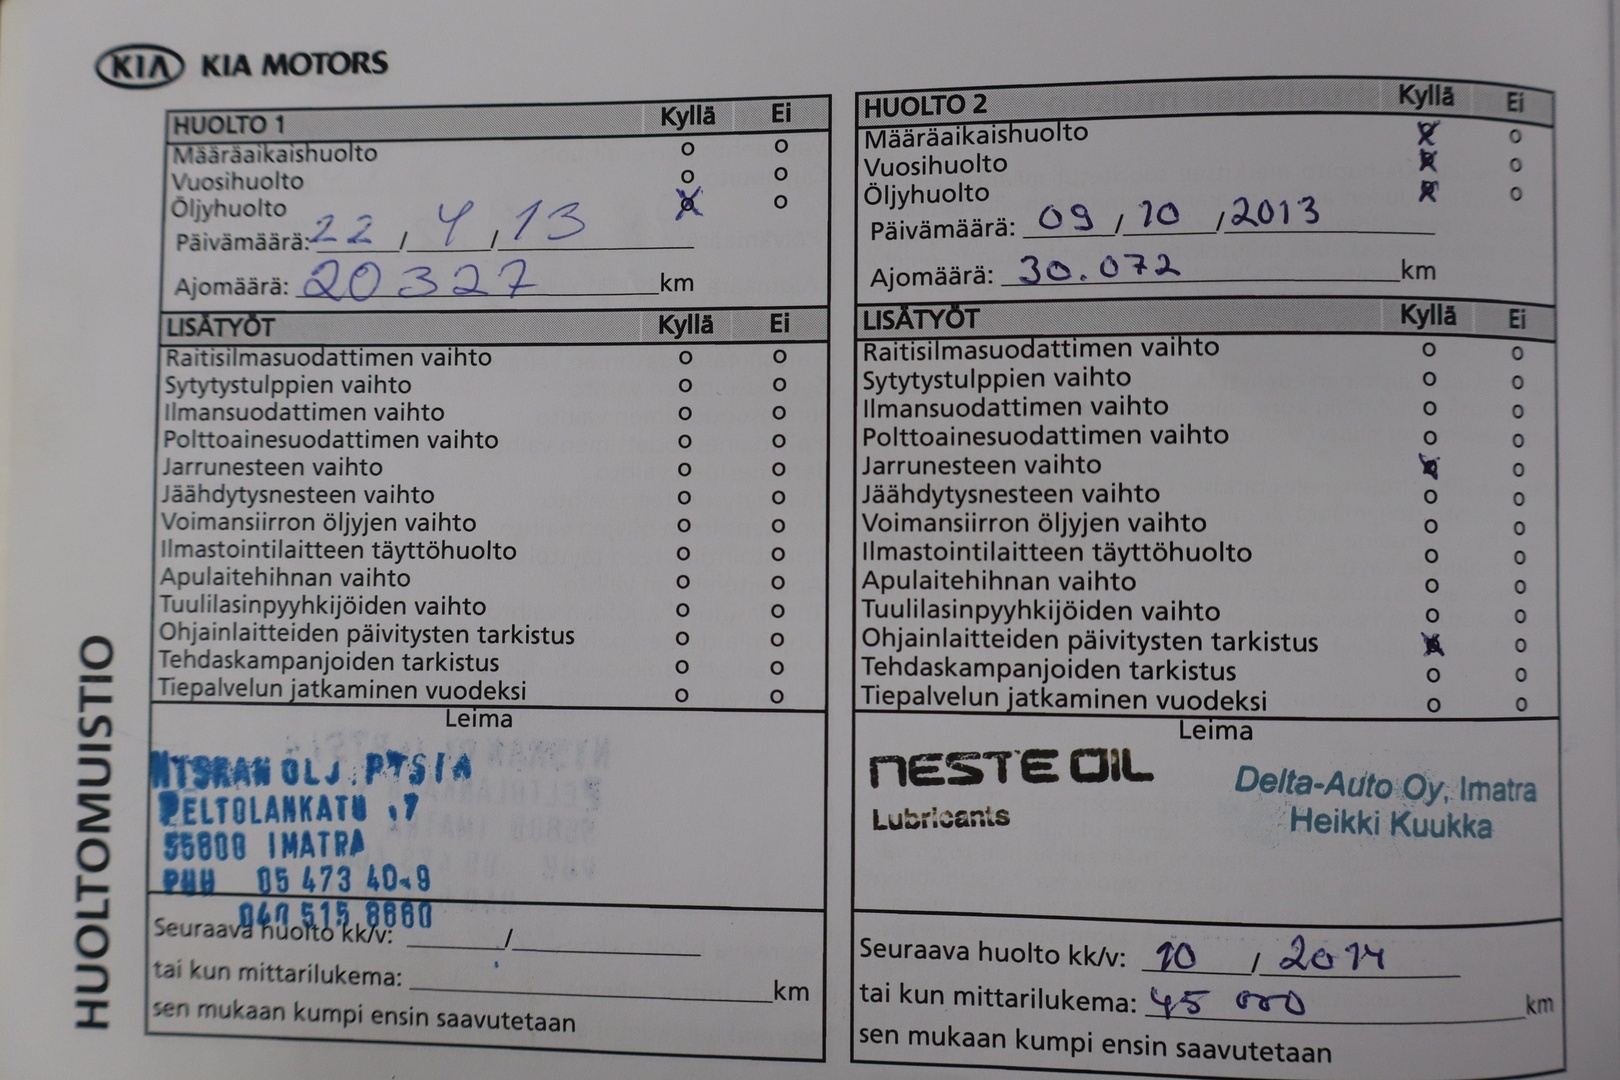 KIA KIA MOTORS
HUOLTOMUISTIO
HUOLTO 1 Kyllä Ei
Määräaikaishuolto o o
Vuosihuolto o o
Öljyhuolto x o
Päivämäärä: 22 / 4 / 13
Ajomäärä: 20327 km
LISÄTYÖT Kyllä Ei
Raitisilmasuodattimen vaihto o o
Sytytystulppien vaihto o o
Ilmansuodattimen vaihto o o
Polttoainesuodattimen vaihto o o
Jarrunesteen vaihto o o
Jäähdytysnesteen vaihto o o
Voimansiirron öljyjen vaihto o o
Ilmastointilaitteen täyttöhuolto o o
Apulaitehihnan vaihto o o
Tuulilasinpyyhkijöiden vaihto o o
Ohjainlaitteiden päivitysten tarkistus o o
Tehdaskampanjoiden tarkistus o o
Tiepalvelun jatkaminen vuodeksi o o
Leima
PELTOLANKATU 17
55800 IMATRA
PUH 05 473
040 515 8660
Seuraava huolto kk/v: /
tai kun mittarilukema: km
sen mukaan kumpi ensin saavutetaan
HUOLTO 2 Kyllä Ei
Määräaikaishuolto x o
Vuosihuolto x o
Öljyhuolto x o
Päivämäärä: 09 / 10 / 2013
Ajomäärä: 30.072 km
LISÄTYÖT Kyllä Ei
Raitisilmasuodattimen vaihto o o
Sytytystulppien vaihto o o
Ilmansuodattimen vaihto o o
Polttoainesuodattimen vaihto o o
Jarrunesteen vaihto x o
Jäähdytysnesteen vaihto o o
Voimansiirron öljyjen vaihto o o
Ilmastointilaitteen täyttöhuolto o o
Apulaitehihnan vaihto o o
Tuulilasinpyyhkijöiden vaihto o o
Ohjainlaitteiden päivitysten tarkistus x o
Tehdaskampanjoiden tarkistus o o
Tiepalvelun jatkaminen vuodeksi o o
Leima
NESTE OIL
Lubricants
Delta-Auto Oy, Imatra
Heikki Kuukka
Seuraava huolto kk/v: 10 / 2014
tai kun mittarilukema: 45 000 km
sen mukaan kumpi ensin saavutetaan